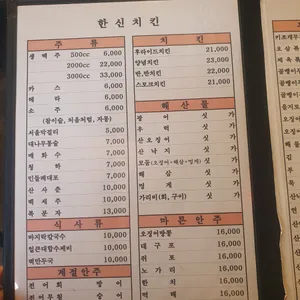 한신치킨
주 류
생 맥 주 500cc 6,000
2000cc 22,000
3000cc 33,000
카 스 5,000
테 라 5,000
소 주 5,000
(참이슬, 처음처럼, 자몽)
서울막걸리 5,000
대나무통술 7,000
매 화 수 7,000
청 하 7,000
민들레대포 7,000
산 사 춘 10,000
백 세 주 10,000
복 분 자 13,000
식 사 류
바지락칼국수 10,000
얼큰대합수제비 10,000
떡만두국 10,000
계절안주
전 어 회 방 어
전어무침
치 킨
후라이드치킨 21,000
양념치킨 23,000
반,반치킨 22,000
스모크치킨 21,000
해 산 물
광 어 싯 가
우 럭 싯 가
산오징어 싯 가
산 낙 지 싯 가
모듬(오징어+해삼+멍게) 싯 가
해 삼 싯 가
멍 게 싯 가
가리비(회, 구이) 싯 가
마 른 안 주
오징어땅콩 16,000
대 구 포 16,000
쥐 포 16,000
노 가 리 16,000
한 치 16,000
먹 태 16,000